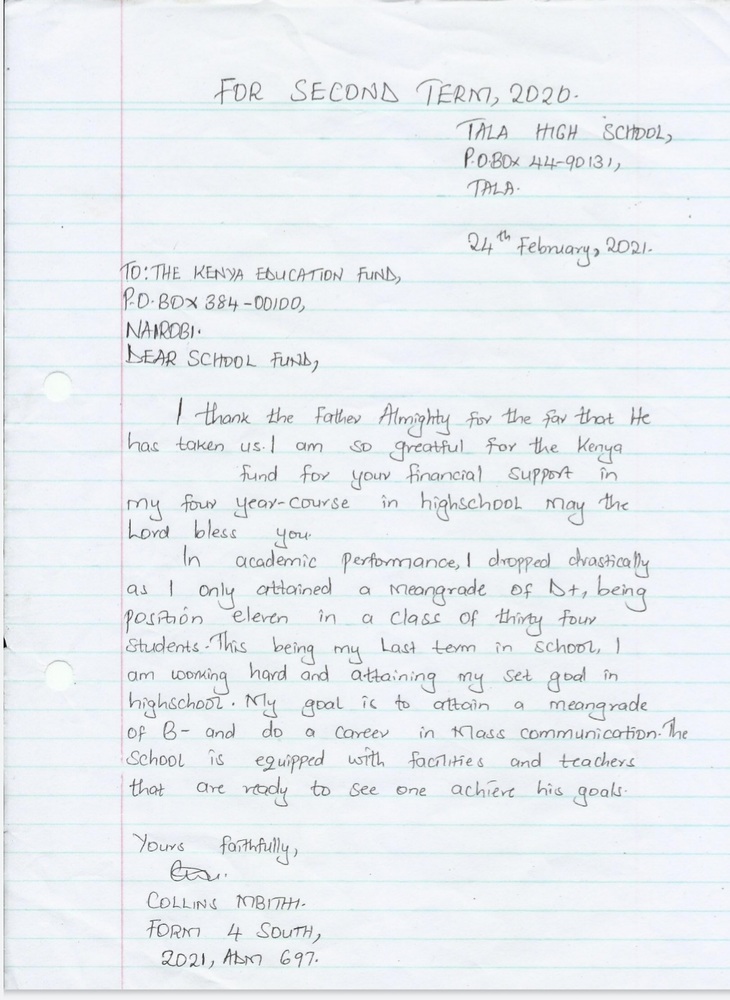 FOR SECOND TERM, 2020.
TALA HIGH SCHOOL,
P.O.BOX 44-90131,
TALA.
24th February, 2021.
TO: THE KENYA EDUCATION FUND,
P.O.BOX 384-00100,
NAIROBI.
DEAR SCHOOL FUND,
I thank the Father Almighty for the far that He
has taken us. I am so greatful for the Kenya
fund for your financial support in
my four year-course in highschool may the
Lord bless you.
In academic performance, I dropped drastically
as I only attained a meangrade of D+, being
position eleven in a class of thirty four
students. This being my Last term in school, I
am working hard and attaining my set goal in
highschool. My goal is to attain a meangrade
of B- and do a career in Mass communication. The
School is equipped with facilities and teachers
that are ready to see one achieve his goals.
Yours faithfully,
COLLINS MBITHI.
FORM 4 SOUTH,
2021, ADM 697.